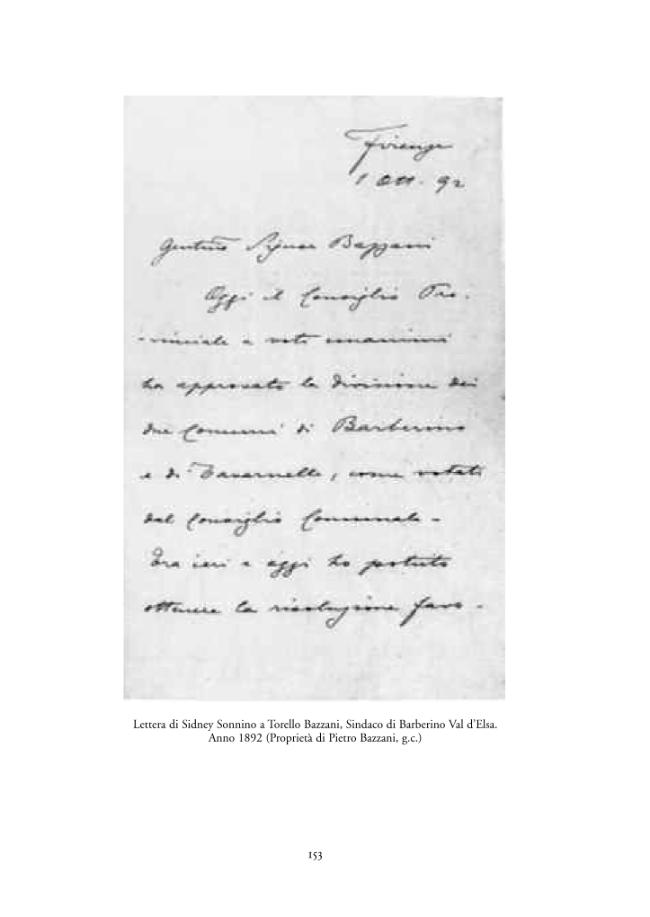 Firenze
1 Ott. 92
Gentmo Signor Bazzani
Oggi il Consiglio Pro-
-vinciale a voti unanimi
ha approvato la divisione dei
due Comuni di Barberino
e di Tavarnelle, come votata
dal Consiglio Comunale -
Tra ieri e oggi ho potuto
ottenere la risoluzione favo-
Lettera di Sidney Sonnino a Torello Bazzani, Sindaco di Barberino Val d'Elsa.
Anno 1892 (Proprietà di Pietro Bazzani, g.c.)
153